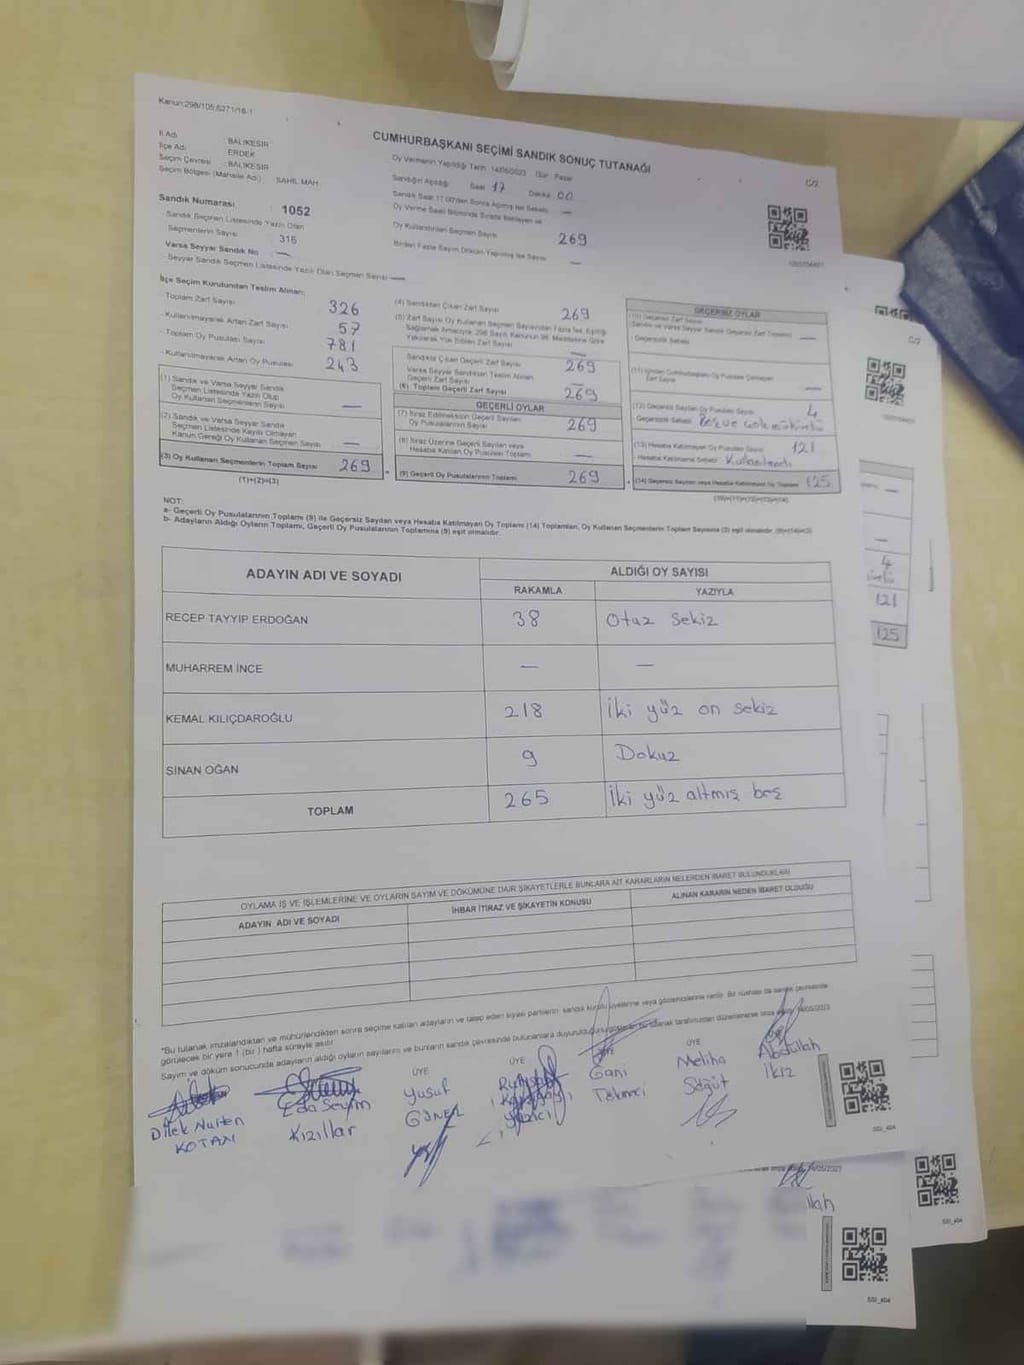 Kanun:298/105;6271/16-1
CUMHURBAŞKANI SEÇİMİ SANDIK SONUÇ TUTANAĞI
C/2
İl Adı : BALIKESİR
İlçe Adı : ERDEK
Seçim Çevresi : BALIKESİR
Seçim Bölgesi (Mahalle Adı) : SAHİL MAH.
Oy Vermenin Yapıldığı Tarih: 14/05/2023 Gün: Pazar
Sandığın Açıldığı Saat 17 Dakika 00
Sandık Saat 17.00'den Sonra Açılmış İse Sebebi —
Oy Verme Saati Bitiminde Sırada Bekleyen ve
Oy Kullandırılan Seçmen Sayısı 269
Birden Fazla Sayım Döküm Yapılmış İse Sayısı —
Sandık Numarası : 1052
Sandık Seçmen Listesinde Yazılı Olan
Seçmenlerin Sayısı : 316
Varsa Seyyar Sandık No —
Seyyar Sandık Seçmen Listesinde Yazılı Olan Seçmen Sayısı —
İlçe Seçim Kurulundan Teslim Alınan:
- Toplam Zarf Sayısı 326
- Kullanılmayarak Artan Zarf Sayısı 57
- Toplam Oy Pusulası Sayısı 781
- Kullanılmayarak Artan Oy Pusulası 243
(1) Sandık ve Varsa Seyyar Sandık
Seçmen Listesinde Yazılı Olup
Oy Kullanan Seçmenlerin Sayısı —
(2) Sandık ve Varsa Seyyar Sandık
Seçmen Listesinde Kayıtlı Olmayan
Kanun Gereği Oy Kullanan Seçmen Sayısı —
(3) Oy Kullanan Seçmenlerin Toplam Sayısı 269
(1)+(2)=(3)
(4) Sandıktan Çıkan Zarf Sayısı 269
(5) Zarf Sayısı Oy Kullanan Seçmen Sayısından Fazla İse, Eşitliği
Sağlamak Amacıyla; 298 Sayılı Kanunun 98. Maddesine Göre
Yakılarak Yok Edilen Zarf Sayısı —
Sandıkta Çıkan Geçerli Zarf Sayısı 269
Varsa Seyyar Sandıktan Teslim Alınan
Geçerli Zarf Sayısı —
(6) Toplam Geçerli Zarf Sayısı 269
GEÇERLİ OYLAR
(7) İtiraz Edilmeksizin Geçerli Sayılan
Oy Pusulalarının Sayısı 269
(8) İtiraz Üzerine Geçerli Sayılan veya
Hesaba Katılan Oy Pusulası Toplamı —
(9) Geçerli Oy Pusulalarının Toplamı 269
GEÇERSİZ OYLAR
(10) Geçersiz Zarf Sayısı
(Sandık ve Varsa Seyyar Sandık Geçersiz Zarf Toplamı) —
Geçersizlik Sebebi
(11) İçinden Cumhurbaşkanı Oy Pusulası Çıkmayan
Zarf Sayısı —
(12) Geçersiz Sayılan Oy Pusulası Sayısı 4
Geçersizlik Sebebi Boş ve Çok mühürlü
(13) Hesaba Katılmayan Oy Pusulası Sayısı 121
Hesaba Katılmama Sebebi Kullanılmadı
(14) Geçersiz Sayılan veya Hesaba Katılmayan Oy Toplamı 125
(10)+(11)+(12)+(13)=(14)
NOT:
a- Geçerli Oy Pusulalarının Toplamı (9) ile Geçersiz Sayılan veya Hesaba Katılmayan Oy Toplamı (14) Toplamları, Oy Kullanan Seçmenlerin Toplam Sayısına (3) eşit olmalıdır. (9)+(14)=(3)
b- Adayların Aldığı Oyların Toplamı, Geçerli Oy Pusulalarının Toplamına (9) eşit olmalıdır.
ADAYIN ADI VE SOYADI ALDIĞI OY SAYISI
RAKAMLA YAZIYLA
RECEP TAYYİP ERDOĞAN 38 Otuz Sekiz
MUHARREM İNCE — —
KEMAL KILIÇDAROĞLU 218 İki yüz on sekiz
SİNAN OĞAN 9 Dokuz
TOPLAM 265 İki yüz altmış beş
OYLAMA İŞ VE İŞLEMLERİNE VE OYLARIN SAYIM VE DÖKÜMÜNE DAİR ŞİKAYETLERLE BUNLARA AİT KARARLARIN NELERDEN İBARET BULUNDUKLARI
ADAYIN ADI VE SOYADI İHBAR İTİRAZ VE ŞİKAYETİN KONUSU ALINAN KARARIN NEDEN İBARET OLDUĞU
*Bu tutanak imzalandıktan ve mühürlendikten sonra seçime katılan adayların ve talep eden siyasi partilerin sandık kurulu üyelerine veya gözlemcilerine verilir. Bir nüshası da sandık çevresinde
görülecek bir yere 1 (bir) hafta süreyle asılır.
Sayım ve döküm sonucunda adayların aldığı oyların sayılarını ve bunların sandık çevresinde bulunanlara duyurulduğunu gösteren bu tutanak tarafımızdan düzenlenerek imza 14/05/2023
ÜYE ÜYE ÜYE ÜYE
Dilek Nurten
KOTAN
Eda Seyim
Kızıllar
Yusuf
GÜNEL
Yazıcı
Gani
Tekmeci
Meliha
Söğüt
Abdullah
İkiz
SSI_404
C/2
4
121
125
14/05/2023
llah
SSI_404
SSI_404